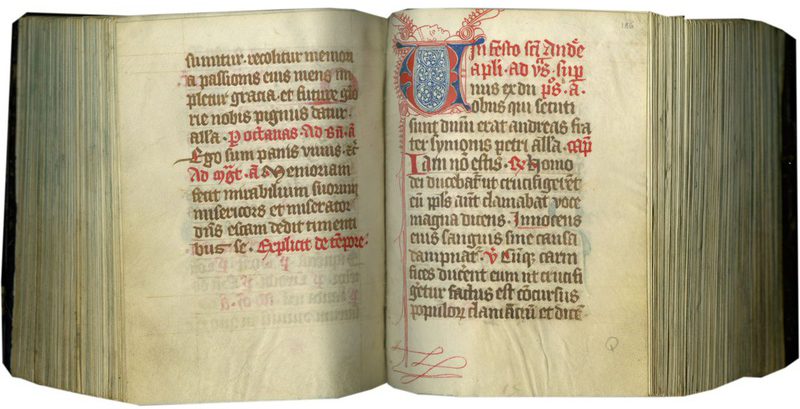 sumitur. recolitur memori
a passionis eius mens im
pletur gracia. et future glo
rie nobis pignus datur.
alla. P octauas. Ad
Ego sum panis viuus. &c
Ad a Memoriam
fecit mirabilium suorum
misericors et miserator
dns escam dedit timenti
bus se. Explicit de tempore.
186
In festo sci Andree
apli. ad vs. sup
mus ex du ps. a.
Unus ex duobus qui secuti
sunt dnm erat andreas fra
ter symonis petri alla. cap
Iam no estis. R Homo
dei ducebatur ut crucifigeret
cu ppls aut clamabat voce
magna dicens. Innocens
eius sanguis sine causa
dampnat. V Cuq carni
fices ducerent eum ut crucifi
getur factus est cocursus
populor clamatiu et dicet
Q